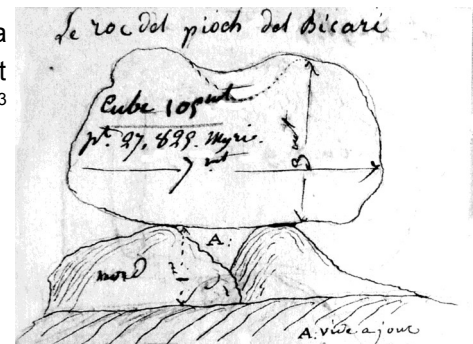 a
t
3
Le roc del pioch del Bicari
Cube 105 mt
pt. 27.829. Myri.
7 mt
3 mt
A.
nord
A. vide a jour